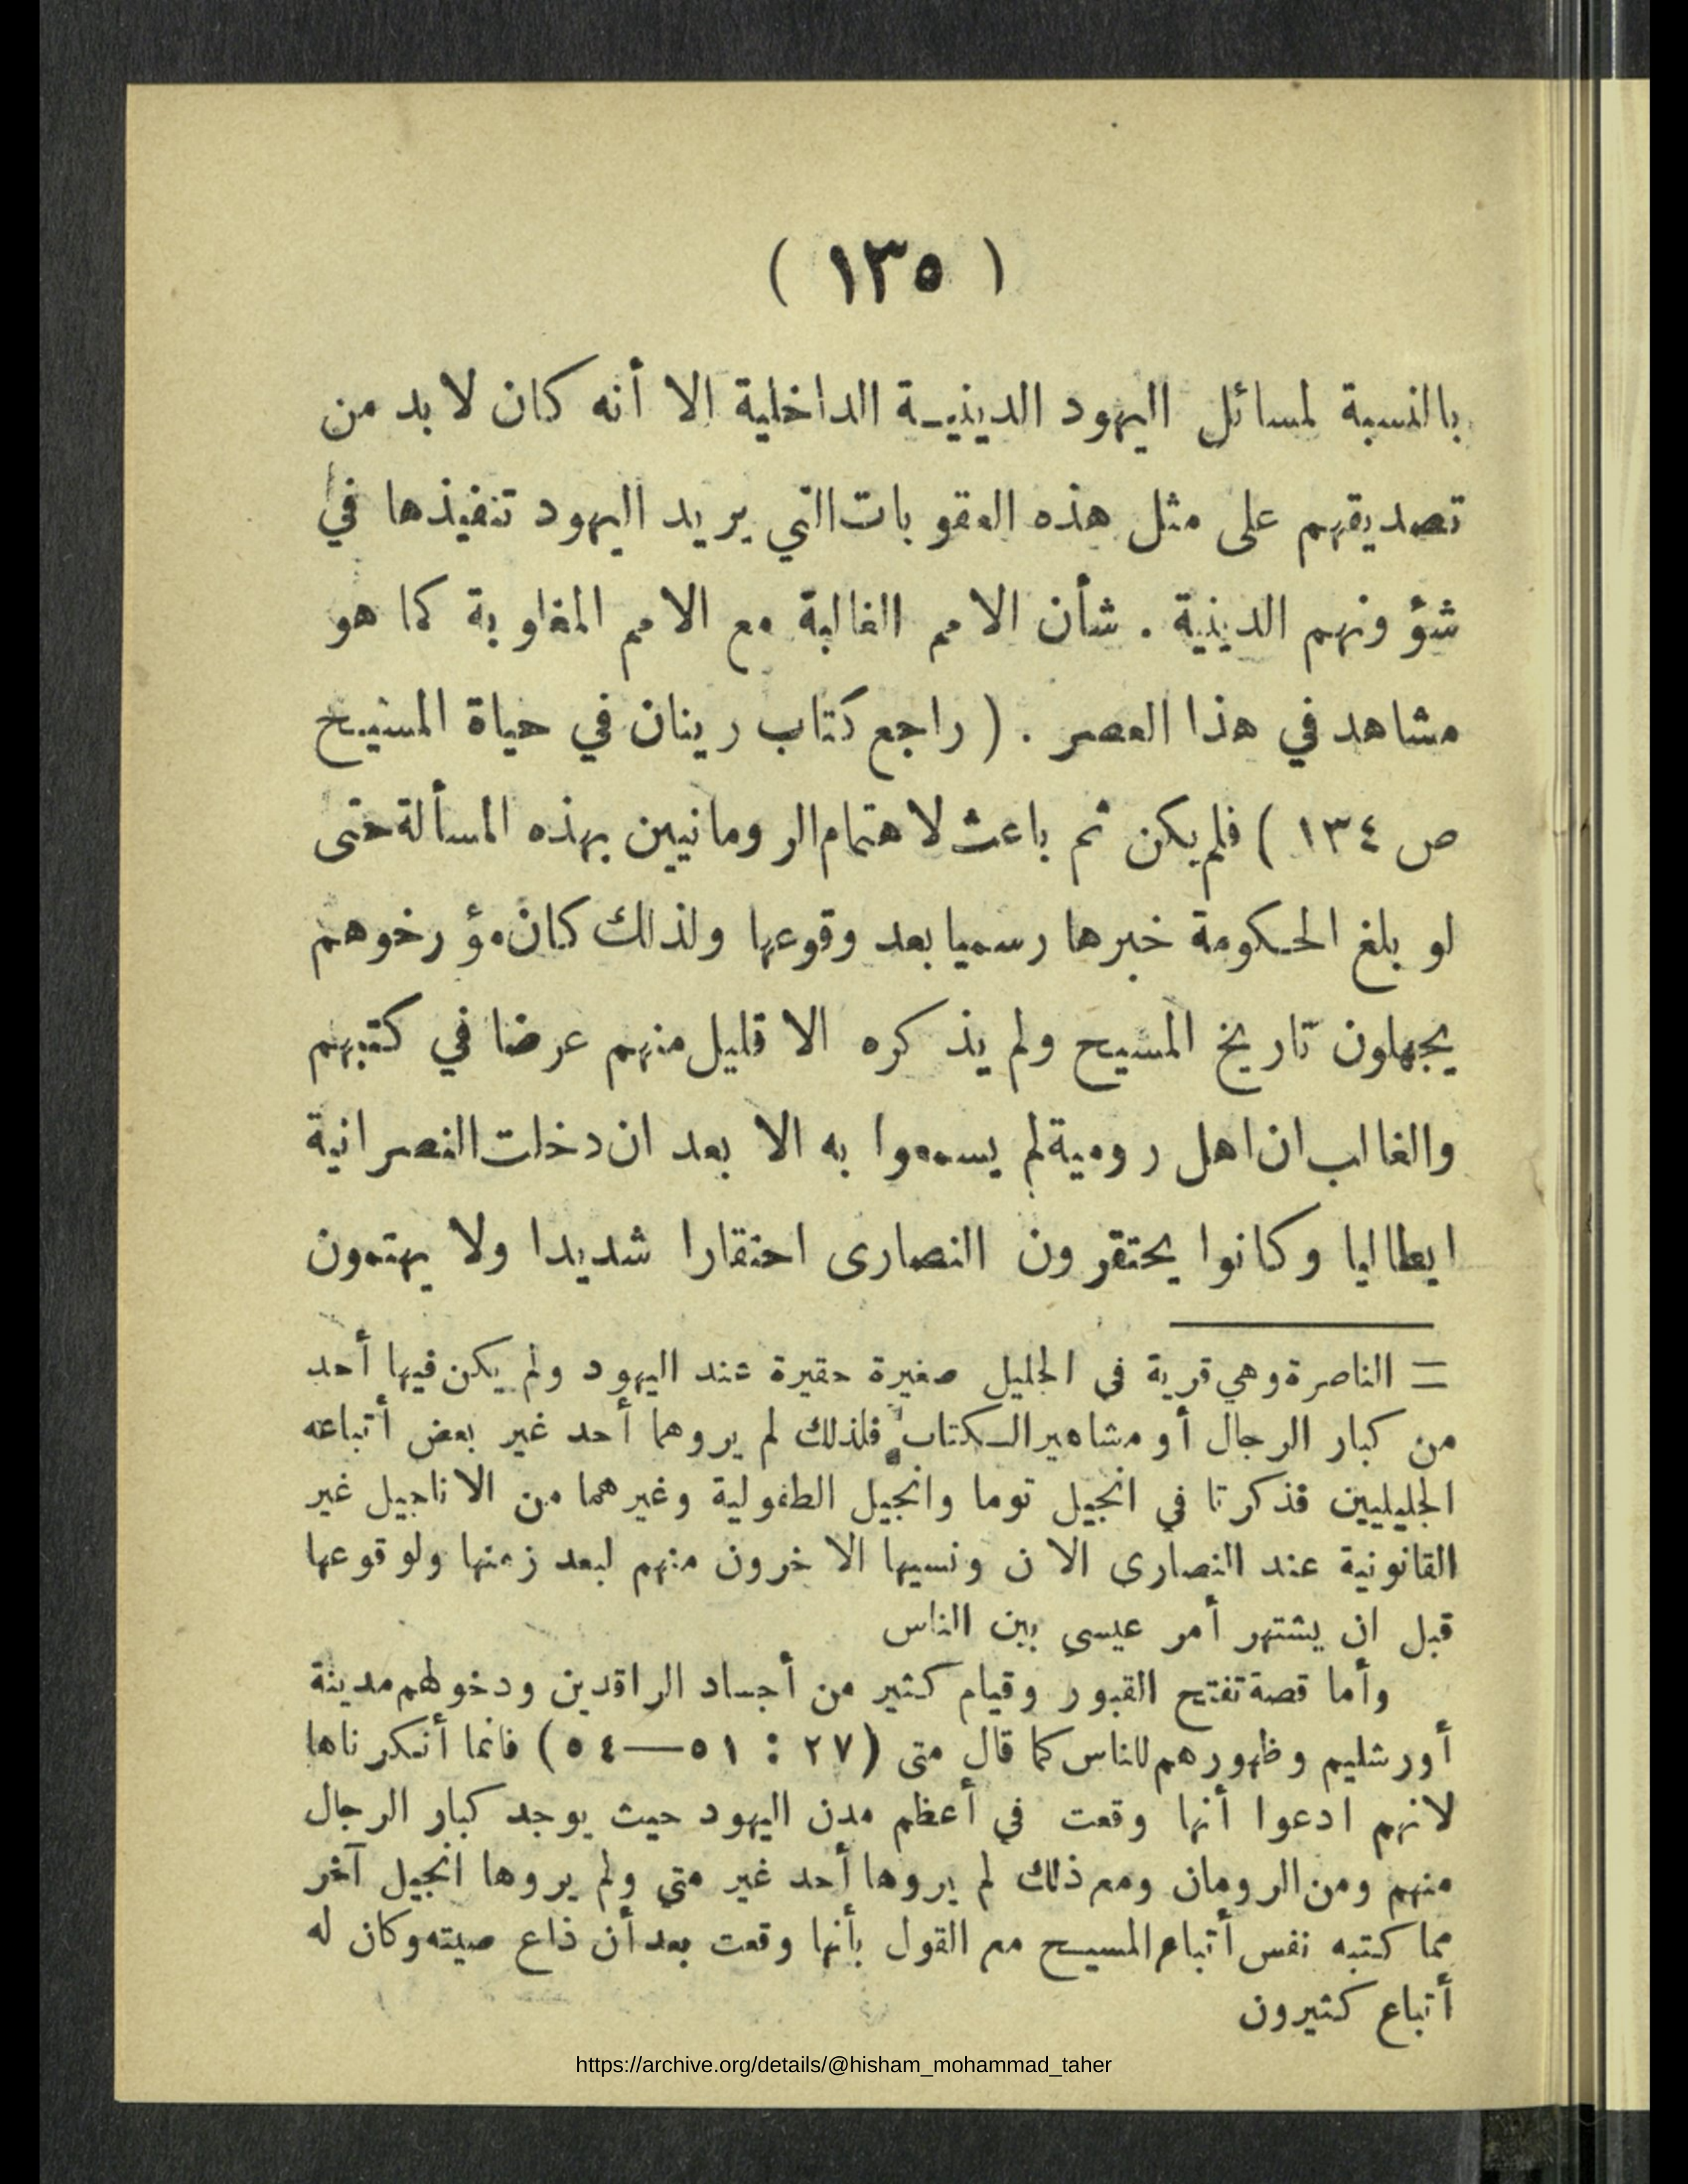 ( ١٣٥ )
بالنسبة لمسائل اليهود الدينيـة الداخلية الا أنه كان لا بد من
تصديقهم على مثل هذه العقوبات التي يريد اليهود تنفيذها في
شؤونهم الدينية . شأن الامم الغالبة مع الامم المغلوبة كما هو
مشاهد في هذا العصر . ( راجع كتاب رينان في حياة المسيح
ص ١٣٤ ) فلم يكن ثم باعث لاهتمام الرومانيين بهذه المسألة حتى
لو بلغ الحكومة خبرها رسميا بعد وقوعها ولذلك كان مؤرخوهم
يجهلون تاريخ المسيح ولم يذكره الا قليل منهم عرضا في كتبهم
والغالب ان اهل رومية لم يسمعوا به الا بعد ان دخلت النصرانية
ايطاليا وكانوا يحتقرون النصارى احتقارا شديدا ولا يهتمون
= الناصرة وهي قرية في الجليل صغيرة حقيرة عند اليهود ولم يكن فيها أحد
من كبار الرجال أو مشاهير الكتاب فلذلك لم يروهما أحد غير بعض أتباعه
الجليليين فذكرتا في انجيل توما وانجيل الطفولية وغيرهما من الاناجيل غير
القانونية عند النصارى الان ونسيها الاخرون منهم لبعد زمنها ولوقوعها
قبل ان يشتهر أمر عيسى بين الناس
وأما قصة تفتح القبور وقيام كثير من أجساد الراقدين ودخولهم مدينة
أورشليم وظهورهم للناس كما قال متى (٢٧ : ٥١—٥٤) فانما أنكرناها
لانهم ادعوا أنها وقعت في أعظم مدن اليهود حيث يوجد كبار الرجال
منهم ومن الرومان ومع ذلك لم يروها أحد غير متى ولم يروها انجيل آخر
مما كتبه نفس أتباع المسيح مع القول بأنها وقعت بعد أن ذاع صيته وكان له
أتباع كثيرون
https://archive.org/details/@hisham_mohammad_taher